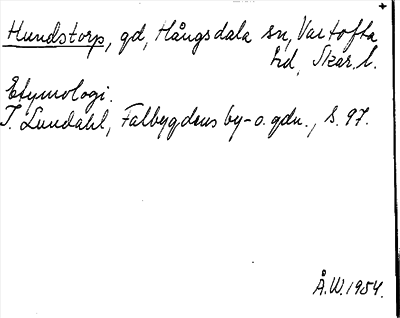 Hundstorp, gd, Hångsdala sn, Vartofta
hd, Skar. l.
Etymologi.
I. Lundahl, Falbygdens by- o. gdn., s. 97.
Å.W. 1954.